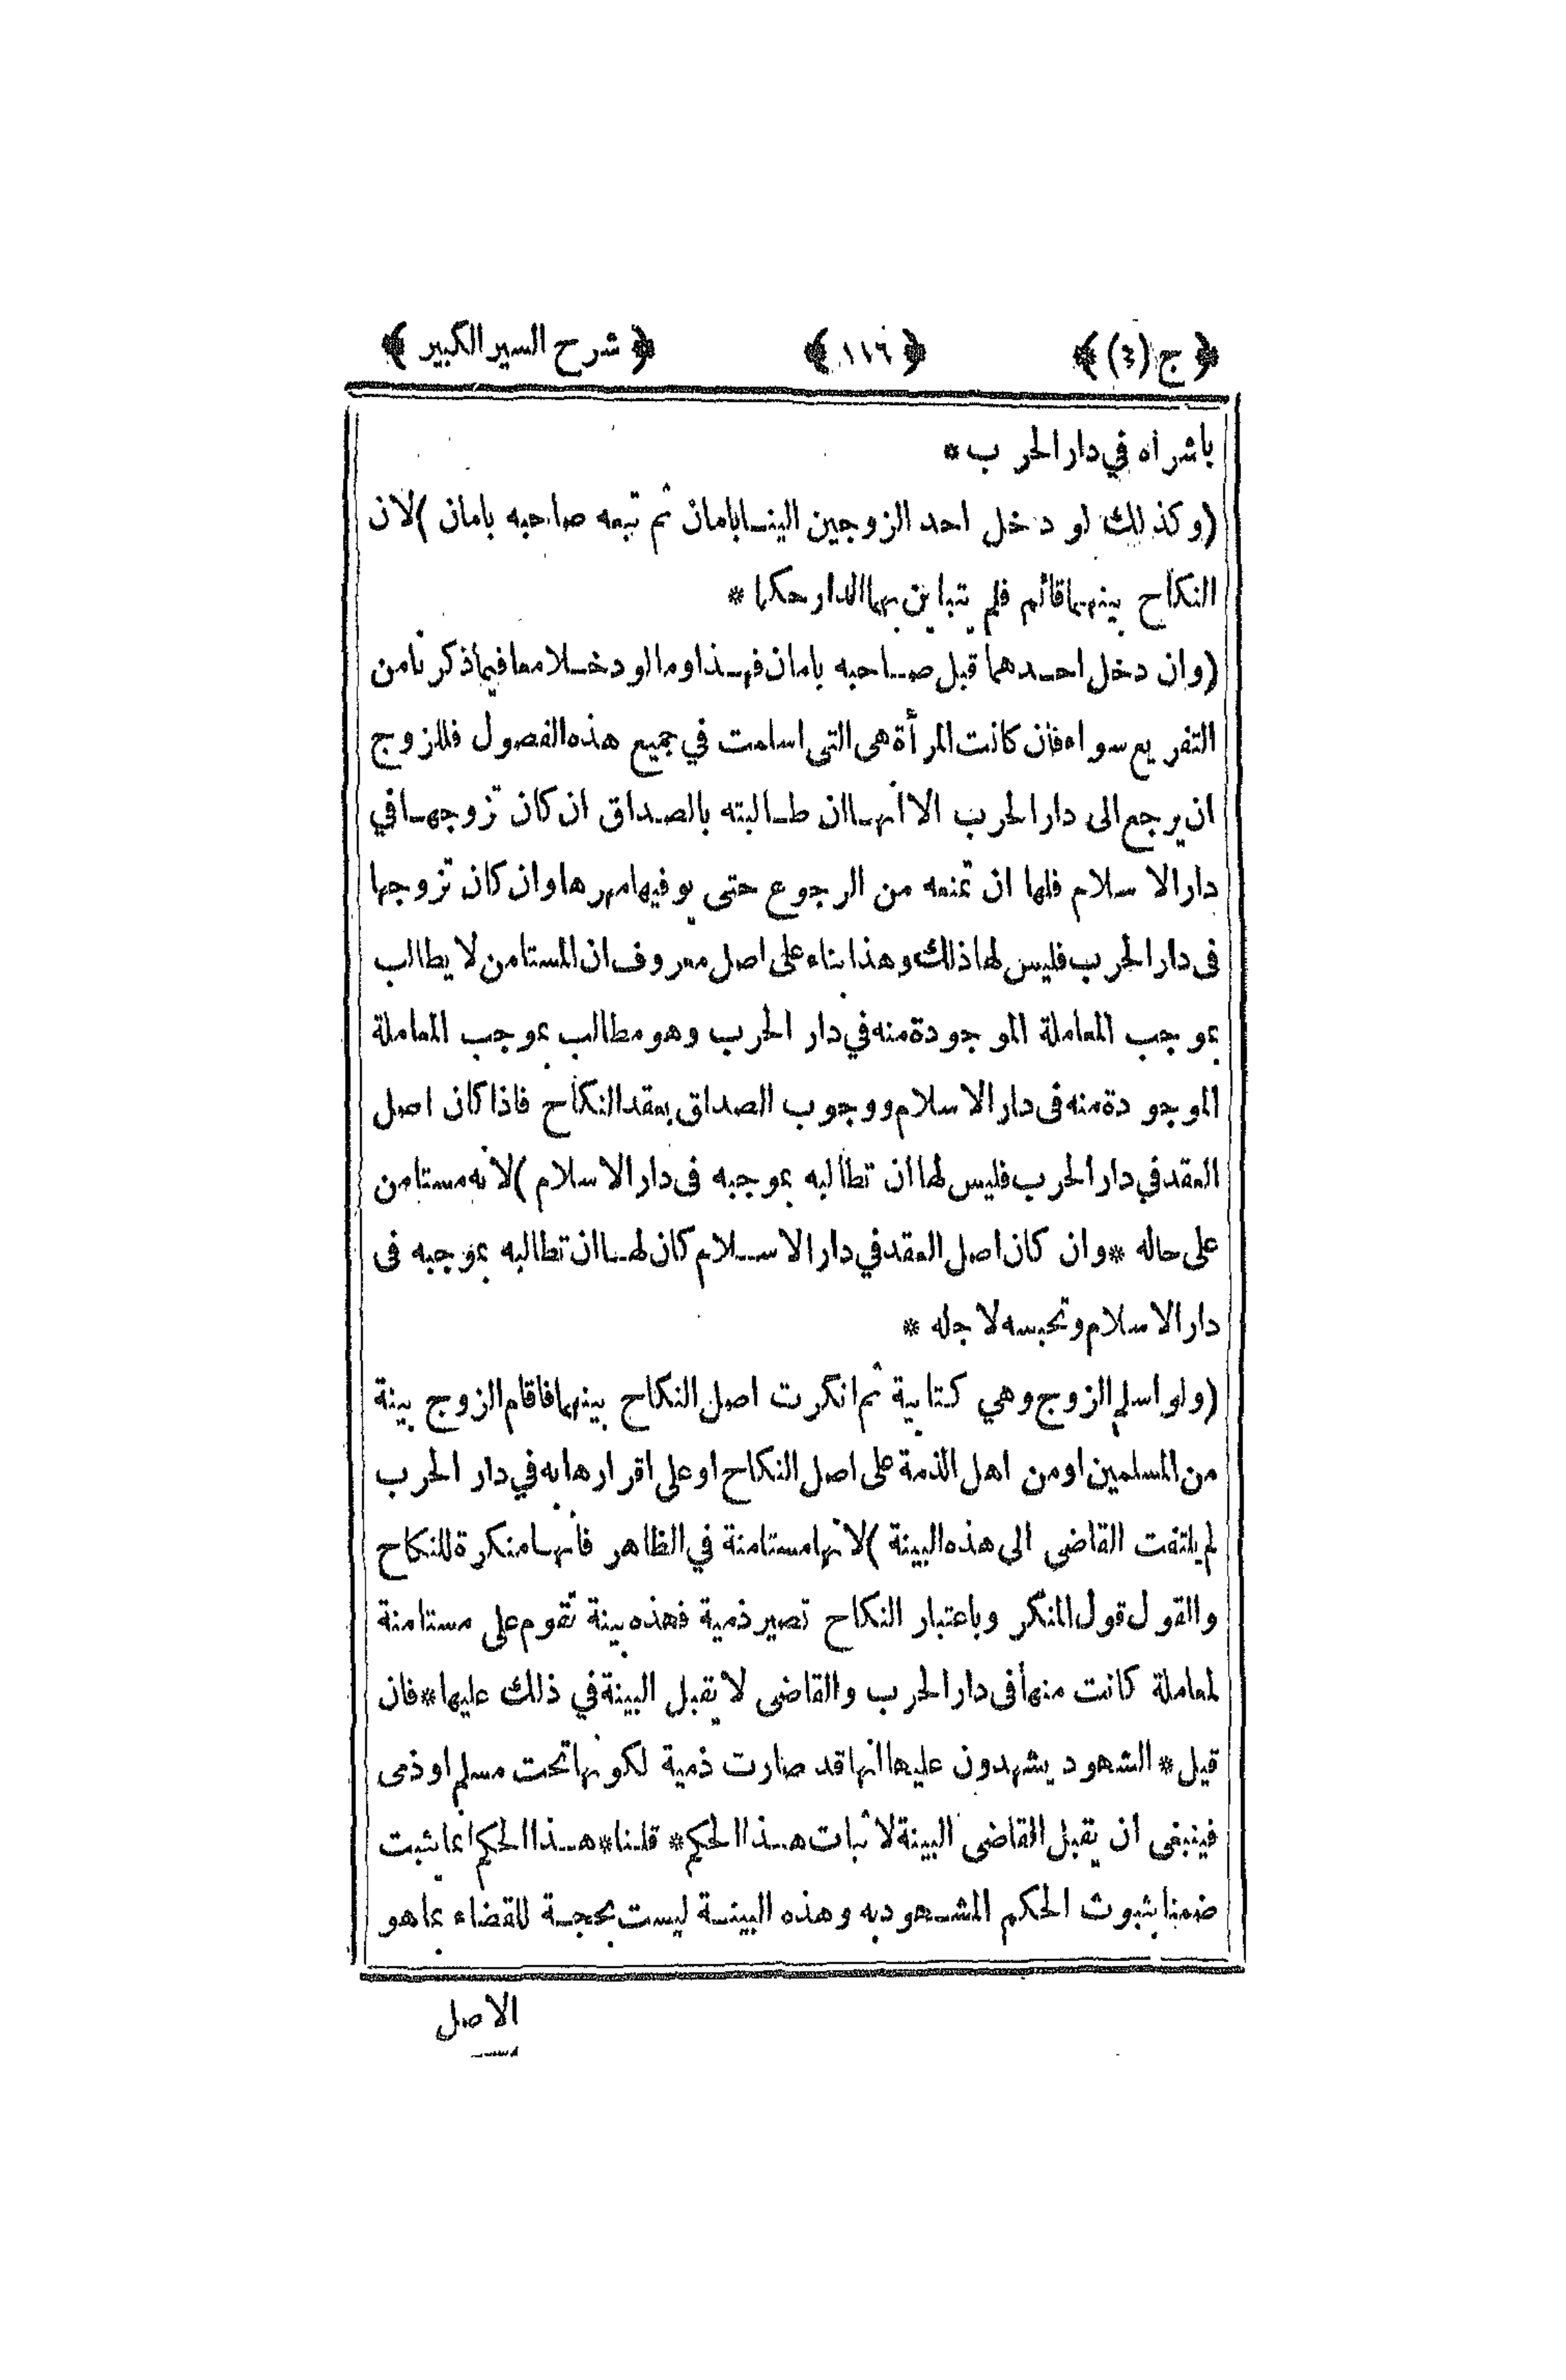 ﴿ ج (٤) ﴾ ﴿ ١١٦ ﴾ ﴿ شرح السير الكبير ﴾
باشراه في دار الحرب *
(وكذلك لو دخل احد الزوجين الينا بامان ثم تبعه صاحبه بامان) لان
النكاح بينهما قائم فلم يتباين بهما الدار حكما *
(وان دخل احدهما قبل صاحبه بامان فهذا وما لو دخلا معا فيما ذكرنا من
التفريع سواء فان كانت المرأة هى التى اسلمت في جميع هذه الفصول فللزوج
ان يرجع الى دار الحرب الا انها ان طالبته بالصداق ان كان تزوجها في
دار الاسلام فلها ان تمنعه من الرجوع حتى يوفيها مهرها وان كان تزوجها
فى دار الحرب فليس لها ذلك وهذا بناء على اصل معروف ان المستامن لا يطالب
بموجب المعاملة الموجودة منه في دار الحرب وهو مطالب بموجب المعاملة
الموجودة منه فى دار الاسلام ووجوب الصداق بعقد النكاح فاذا كان اصل
العقد في دار الحرب فليس لها ان تطالبه بموجبه فى دار الاسلام) لانه مستامن
على حاله * وان كان اصل العقد في دار الاسلام كان لها ان تطالبه بموجبه فى
دار الاسلام وتحبسه لاجله *
(ولو اسلم الزوج وهي كتابية ثم انكرت اصل النكاح بينهما فاقام الزوج بينة
من المسلمين او من اهل الذمة على اصل النكاح او على اقرارها به في دار الحرب
لم يلتفت القاضى الى هذه البينة) لانها مستامنة في الظاهر فانها منكرة للنكاح
والقول قول المنكر وباعتبار النكاح تصير ذمية فهذه بينة تقوم على مستامنة
لمعاملة كانت منها فى دار الحرب والقاضى لا يقبل البينة في ذلك عليها * فان
قيل * الشهود يشهدون عليها انها قد صارت ذمية لكونها تحت مسلم او ذمى
فينبغى ان يقبل القاضى البينة لاثبات هذا الحكم * قلنا * هذا الحكم انما يثبت
ضمنا بثبوت الحكم المشهود به وهذه البينة ليست بحجة للقضاء بما هو
الاصل